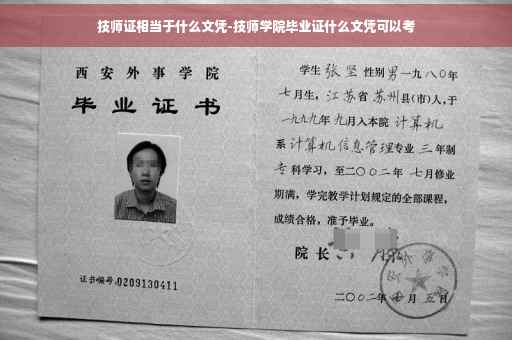 技师证相当于什么文凭-技师学院毕业证什么文凭可以考
西安外事学院
毕业证书
证书编号:0209130411
学生 张坚 性别 男 一九八〇年
七月生，江苏省 苏州 县(市)人,于
一九九九年 九月入本院 计算机
系 计算机信息管理 专业 三 年制
专 科学习，至二〇〇二年 七月修业
期满，学完教学计划规定的全部课程，
成绩合格，准予毕业。
院长
二〇〇二年 月 五 日